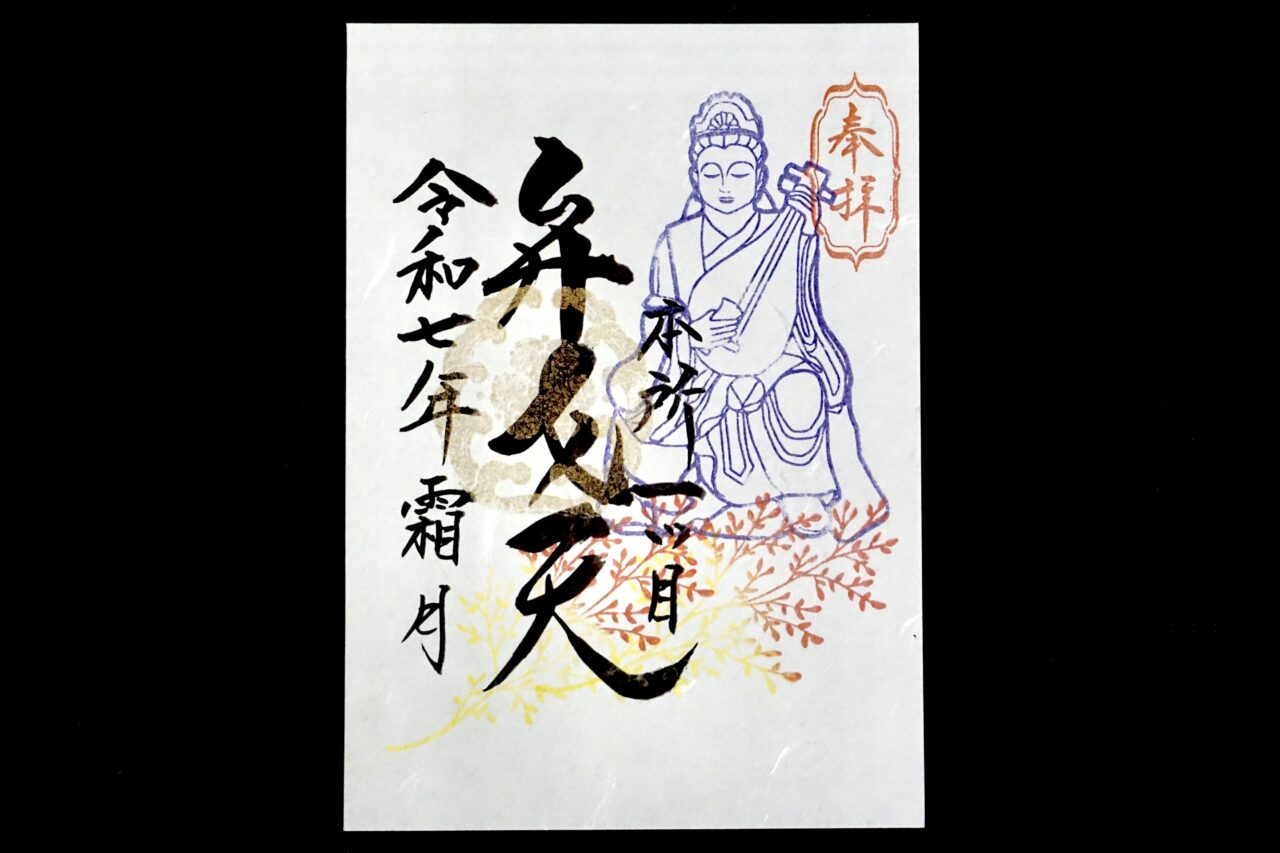 奉拝
本所一ツ目
弁財天
令和七年霜月